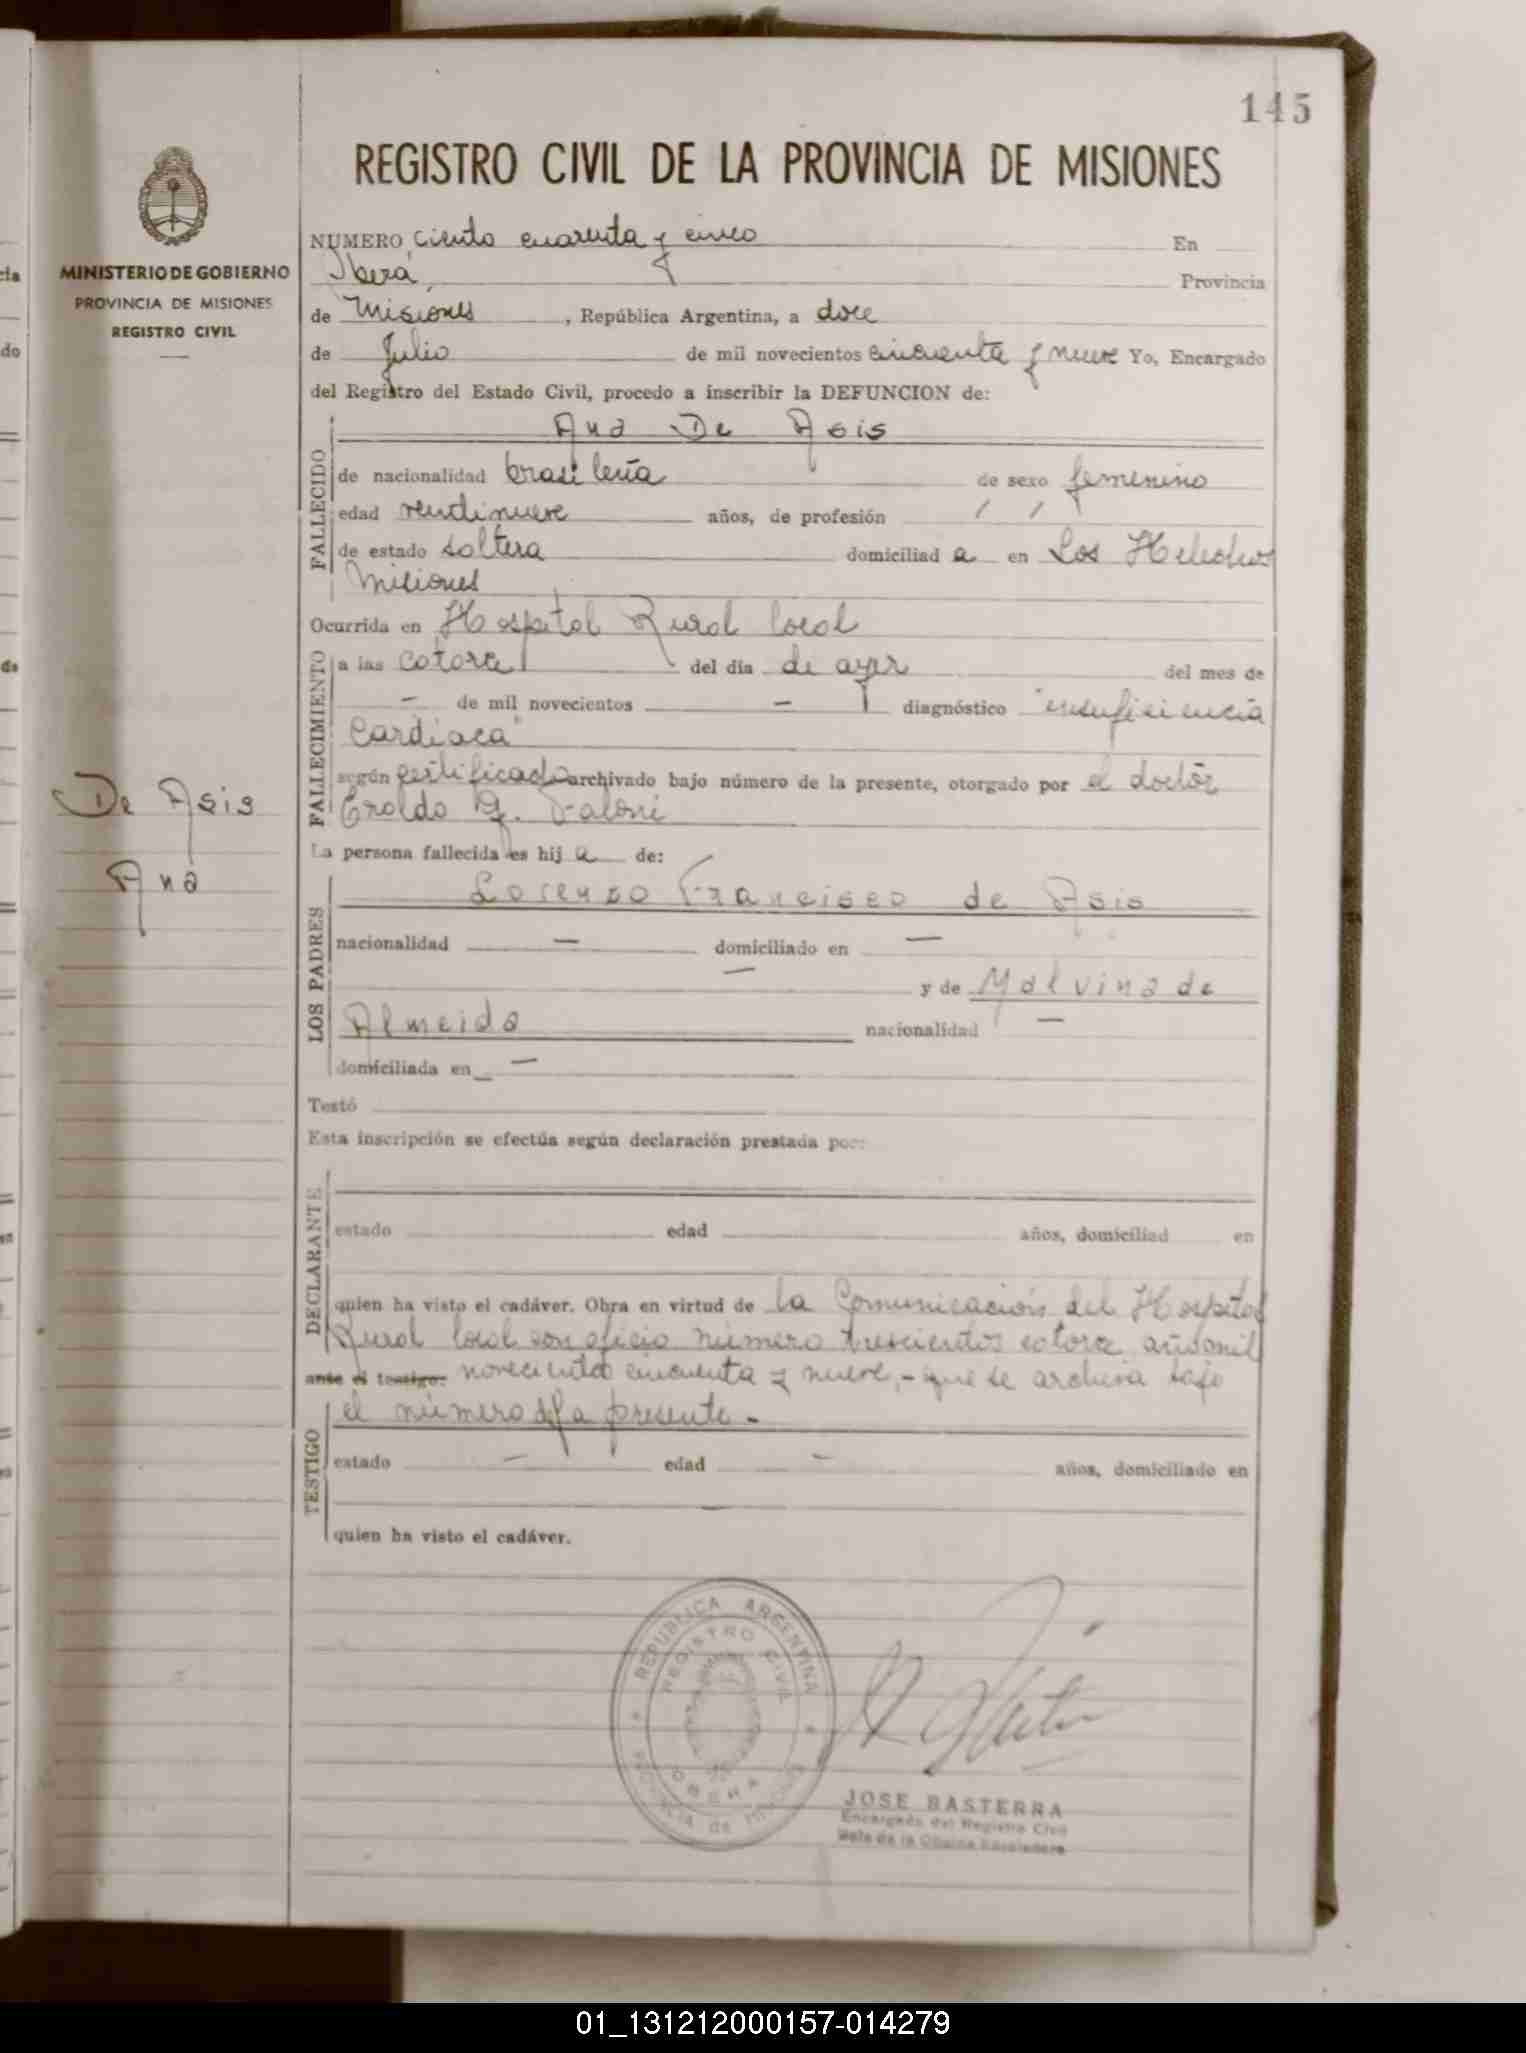 145
REGISTRO CIVIL DE LA PROVINCIA DE MISIONES
MINISTERIO DE GOBIERNO
PROVINCIA DE MISIONES
REGISTRO CIVIL
NUMERO ciento cuarenta y cinco En
Oberá, Provincia
de Misiones, República Argentina, a doce
de Julio de mil novecientos cincuenta y nueve Yo, Encargado
del Registro del Estado Civil, procedo a inscribir la DEFUNCION de:
Ana De Asis
FALLECIDO
de nacionalidad brasileña de sexo femenino
edad veintinueve años, de profesión / /
de estado soltera domiciliad a en Los Helechos
Misiones
Ocurrida en Hospital Rural local
FALLECIMIENTO
a las catorce del día de ayer del mes de
— de mil novecientos — diagnóstico "insuficiencia
Cardiaca"
según certificado archivado bajo número de la presente, otorgado por el doctor
Eroldo
De Asis
Ana
La persona fallecida es hij a de:
LOS PADRES
Lorenzo Francisco de Asis
nacionalidad — domiciliado en —
— y de Malvina de
Almeida nacionalidad —
domiciliada en —
Testó
Esta inscripción se efectúa según declaración prestada por:
DECLARANTE
estado edad años, domiciliad en
quien ha visto el cadáver. Obra en virtud de la Comunicación del Hospital
Rural local con oficio número trescientos catorce, año mil
ante el testigo: novecientos cincuenta y nueve, - que se archiva bajo
el número de la presente -
TESTIGO
estado — edad — años, domiciliado en
—
quien ha visto el cadáver.
REPUBLICA ARGENTINA
REGISTRO CIVIL
OBERA
PROVINCIA de MISIONES
JOSE BASTERRA
Encargado del Registro Civil
Jefe de la Oficina
01_131212000157-014279